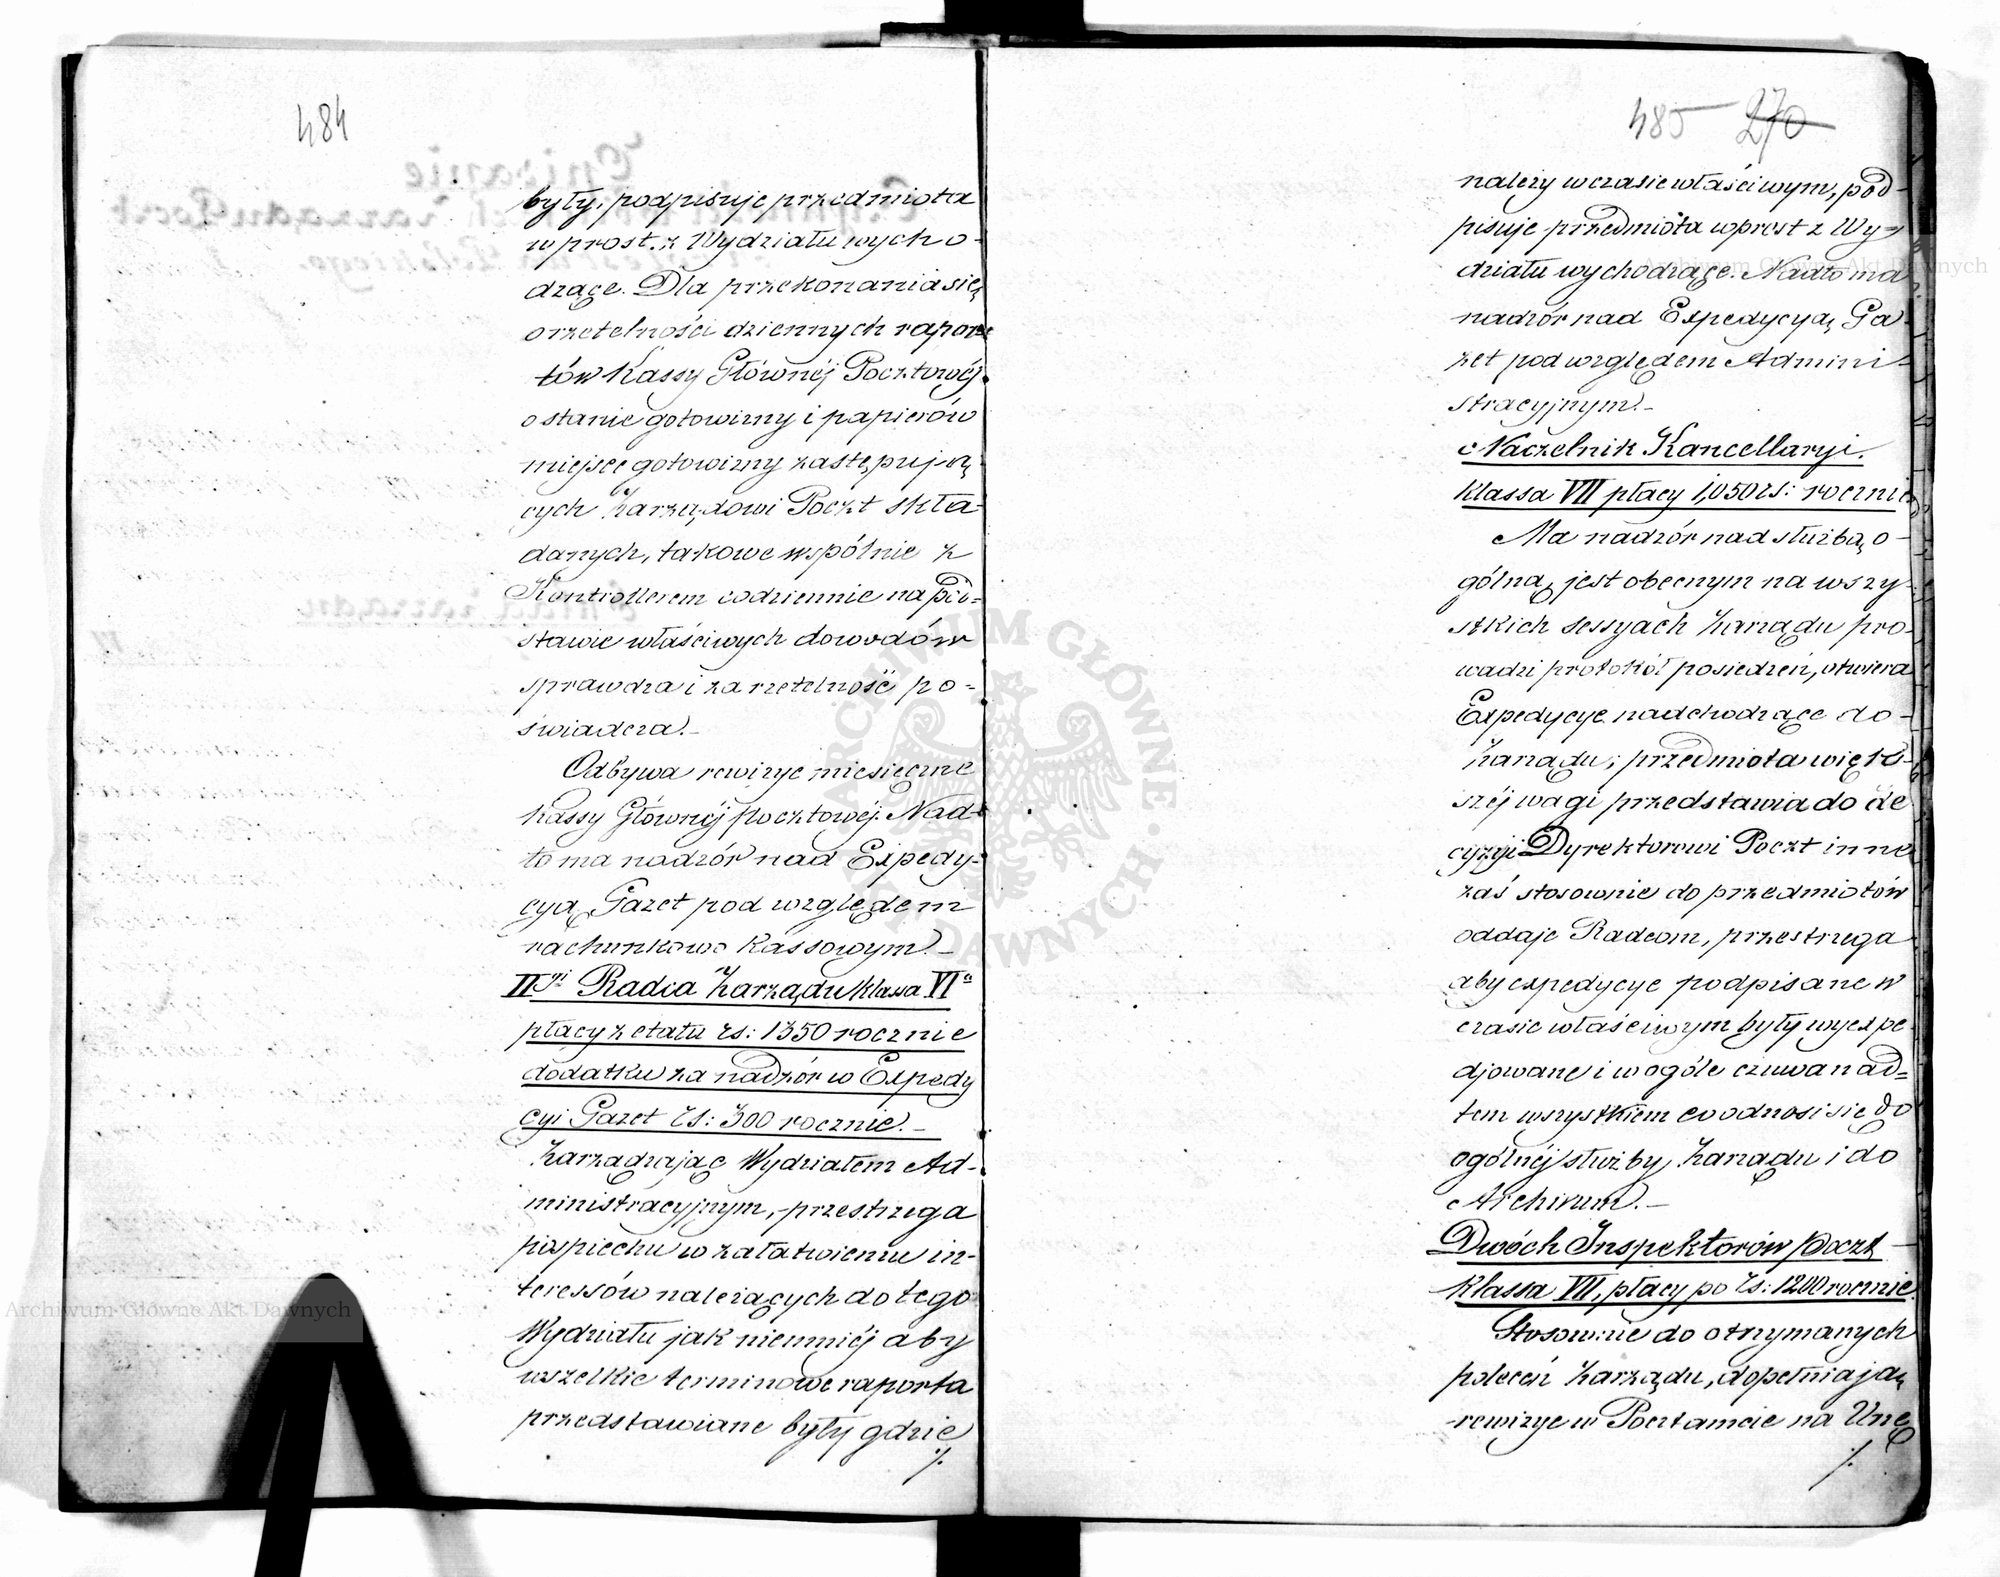 484
były, podpisuje przedmiota
wprost z Wydziału wycho-
dzące. Dla przekonania się
o rzetelności dziennych rapor-
tów Kassy Głównéj Pocztowéj
o stanie gotowizny i papierów
miejsce gotowizny zastępują-
cych Zarządowi Poczt skła-
danych, takowe wspólnie z
Kontrollerem codziennie na pod-
stawie właściwych dowodów
sprawdza i za rzetelność po-
świadcza.-
Odbywa rewizye miesięczne
Kassy Głównéj Pocztowéj. Nad-
to ma nadzór nad Expedy-
cyą Gazet pod względem
rachunkowo Kassowym.-
IIgi Radca Zarządu klassa VIa
płacy z etatu rs: 1350 rocznie
dodatku za nadzór w Expedy
cyi Gazet rs: 300 rocznie.-
Zarządzając Wydziałem Ad-
ministracyjnym, przestrzega
pospiechu w załatwieniu in-
teressów należących do tego
Wydziału jak niemniéj aby
wszelkie terminowe raporta
przedstawiane były gdzie
./.
485 270
należy w czasie właściwym, pod-
pisuje przedmiota wprost z Wy-
działu wychodzące. Nadto ma
nadzór nad Expedycyą Ga-
zet pod względem Admini-
stracyjnym.-
Naczelnik Kancellaryi.
klassa VII płacy 1,050 rs: rocznie
Ma nadzór nad służbą o-
gólną, jest obecnym na wszy-
stkich sessyach Zarządu pro-
wadzi protokół posiedzeń, otwiera
Expedycye nadchodzące do-
Zarządu, przedmiota więk-
széj wagi przedstawia do de
cyzyi Dyrektorowi Poczt inne
zaś stosownie do przedmiotów
oddaje Radcom, przestrzega
aby expedycye podpisane w
czasie właściwym były wyexpe
djowane i w ogóle czuwa nad-
tem wszystkiem co odnosi się do
ogólnéj służby Zarządu i do
Archiwum.-
Dwóch Inspektorów Poczt -
klassa VII, płacy po rs: 1200 rocznie.
Stosownie do otrzymanych
poleceń Zarządu, dopełniają
rewizye w Pocztamcie na Urzę
./.
Archiwum Główne Akt Dawnych
Archiwum Główne Akt Dawnych
ARCHIWUM GŁÓWNE AKT DAWNYCH